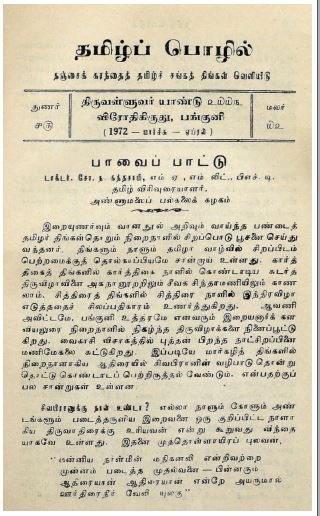 தமிழ்ப் பொழில்
தஞ்சைக் கரந்தைத் தமிழ்ச் சங்கத் திங்கள் வெளியீடு
துணர்
திருவள்ளுவர் யாண்டு
மலர்
விரோதிகிருது, பங்குனி
(1972 — மார்ச்சு — ஏப்ரல்)
பாவைப் பாட்டு
டாக்டர். சோ. ந. கந்தசாமி, எம். ஏ., எம். லிட்., பிஎச். டி.
தமிழ் விரிவுரையாளர்,
அண்ணாமலைப் பல்கலைக் கழகம்
இறையுணர்வும் வானநூல் அறிவும் வாய்ந்த பண்டைத்
தமிழர் திங்கள்தொறும் நிறைநாளில் சிறப்பொடு பூசனை செய்து
வந்தனர். திங்களும் நாளும் தமிழர் வாழ்வில் சிறப்பிடம்
பெற்றமைக்குத் தொல்காப்பியமே சான்றாய் உள்ளது. கார்த்
திகைத் திங்களில் கார்த்திகை நாளில் கொண்டாடிய சுடர்த்
திருவிழாவினை அகநானூற்றிலும் சீவக சிந்தாமணியிலும் காண
லாம். சித்திரைத் திங்களில் சித்திரை நாளில் இந்திரவிழா
எடுத்ததைச் சிலப்பதிகாரம் உணர்த்துகிறது. ஆவணி
அவிட்டமே. பங்குனி உத்தரமே எனவரும் இறையனார்க் கள
வியலுரை நிறைநாளில் நிகழ்ந்த திருவிழாக்களை நினைப்பூட்டு
கிறது. வைகாசி விசாகத்தில் புத்தன் பிறந்த நாட்சிறப்பினை
மணிமேகலை சுட்டுகிறது. இப்படியே மார்கழித் திங்களில்
நிறைநாளாகிய ஆதிரையில் சிவபிரானின் வழிபாடு தொன்று
தொட்டு கொண்டாடப் பெற்றிருத்தல் வேண்டும். என்பதற்குப்
பல சான்றுகள் உள்ளன.
சிவபிரானுக்கு நாள் உண்டா? எல்லா நாளும் கோளும் அண்
டங்களும் படைத்தருளிய இறைவனை ஒரு குறிப்பிட்ட நாளா
கிய திருவாதிரைக்கு உரியவன் என்று கூறுவது விந்தை
யாகவே உள்ளது. இதனை முத்தொள்ளாயிரப் புலவன்,
"மன்னிய நாண்மீன் மதிகனலி என்றிவற்றை
முன்னம் படைத்த முதல்வனை — பின்னரும்
ஆதிரையான் ஆதிரையான் என்றே அயருமால்
ஊர்திரைநீர் வேலி யுலகு"